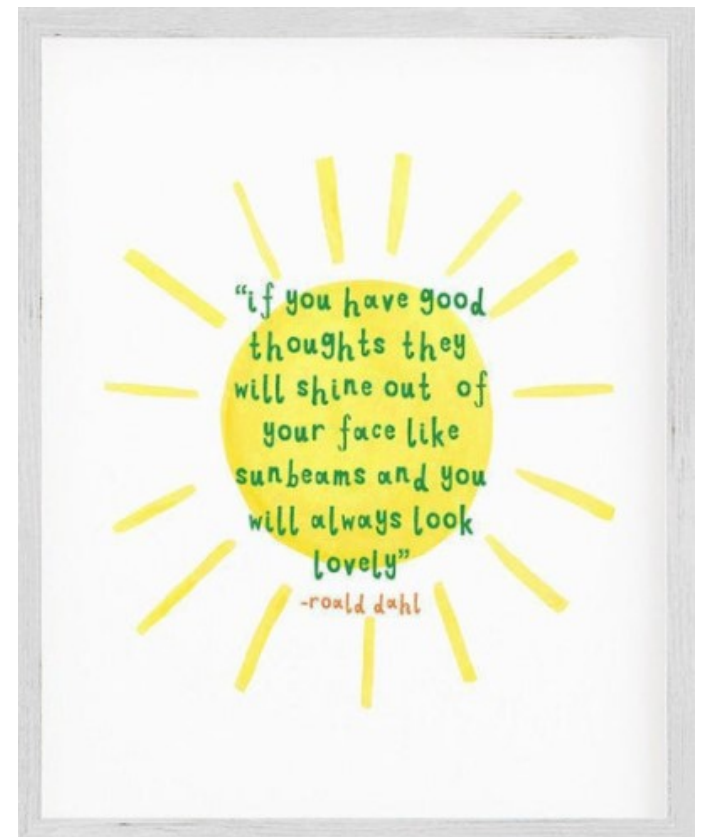 “if you have good
thoughts they
will shine out of
your face like
sunbeams and you
will always look
lovely”
-roald dahl